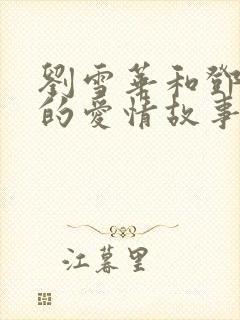 劉雪華和鄧
的愛情故事
江暮里